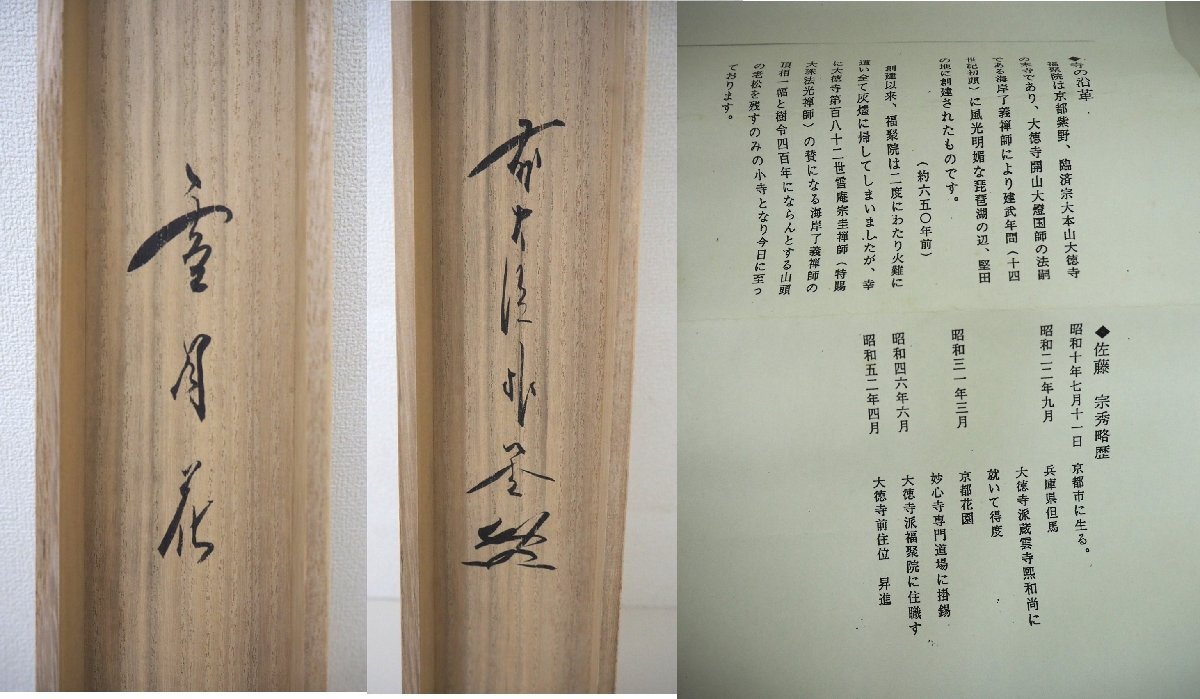 雪月花
前大徳
◆寺の沿革
福聚院は京都紫野、臨済宗大本山大徳寺
の末寺であり、大徳寺開山大燈国師の法嗣
である海岸了義禅師により建武年間(十四
世紀初頭)に風光明媚な琵琶湖の辺、堅田
の地に創建されたものです。
(約六五〇年前)
創建以来、福聚院は二度にわたり火難に
遭い全て灰燼に帰してしまいましたが、幸
に大徳寺第百八十二世雪庵宗圭禅師(特賜
大法光禅師)の賛になる海岸了義禅師の
頂相一幅と樹令四百年にならんとする山頭
の老松を残すのみの小寺となり今日に至っ
ております。
◆佐藤 宗秀略歴
昭和十年七月十一日 京都市に生る。
昭和二二年九月 兵庫県但馬
大徳寺派蔵雲寺熙和尚に
就いて得度
昭和三一年三月 京都花園
妙心寺専門道場に掛錫
昭和四六年六月 大徳寺派福聚院に住職す
昭和五二年四月 大徳寺前住位 昇進